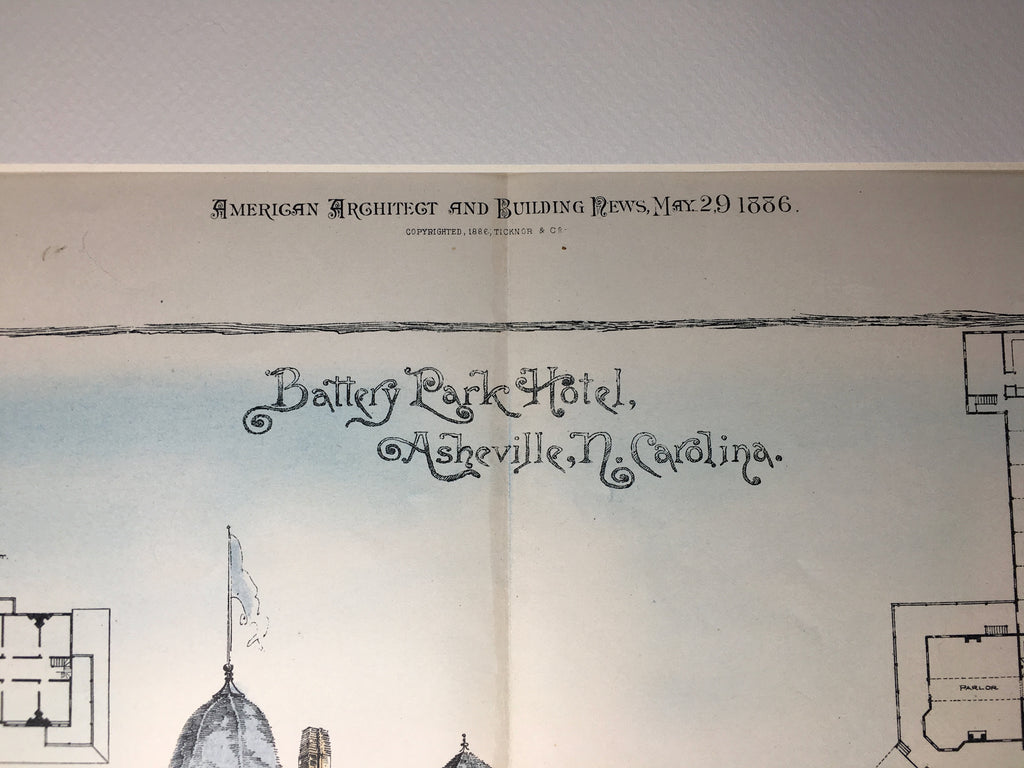 American Architect and Building News, May. 29 1886.
COPYRIGHTED, 1886, TICKNOR & CO.
Battery Park Hotel,
Asheville, N. Carolina.
PARLOR